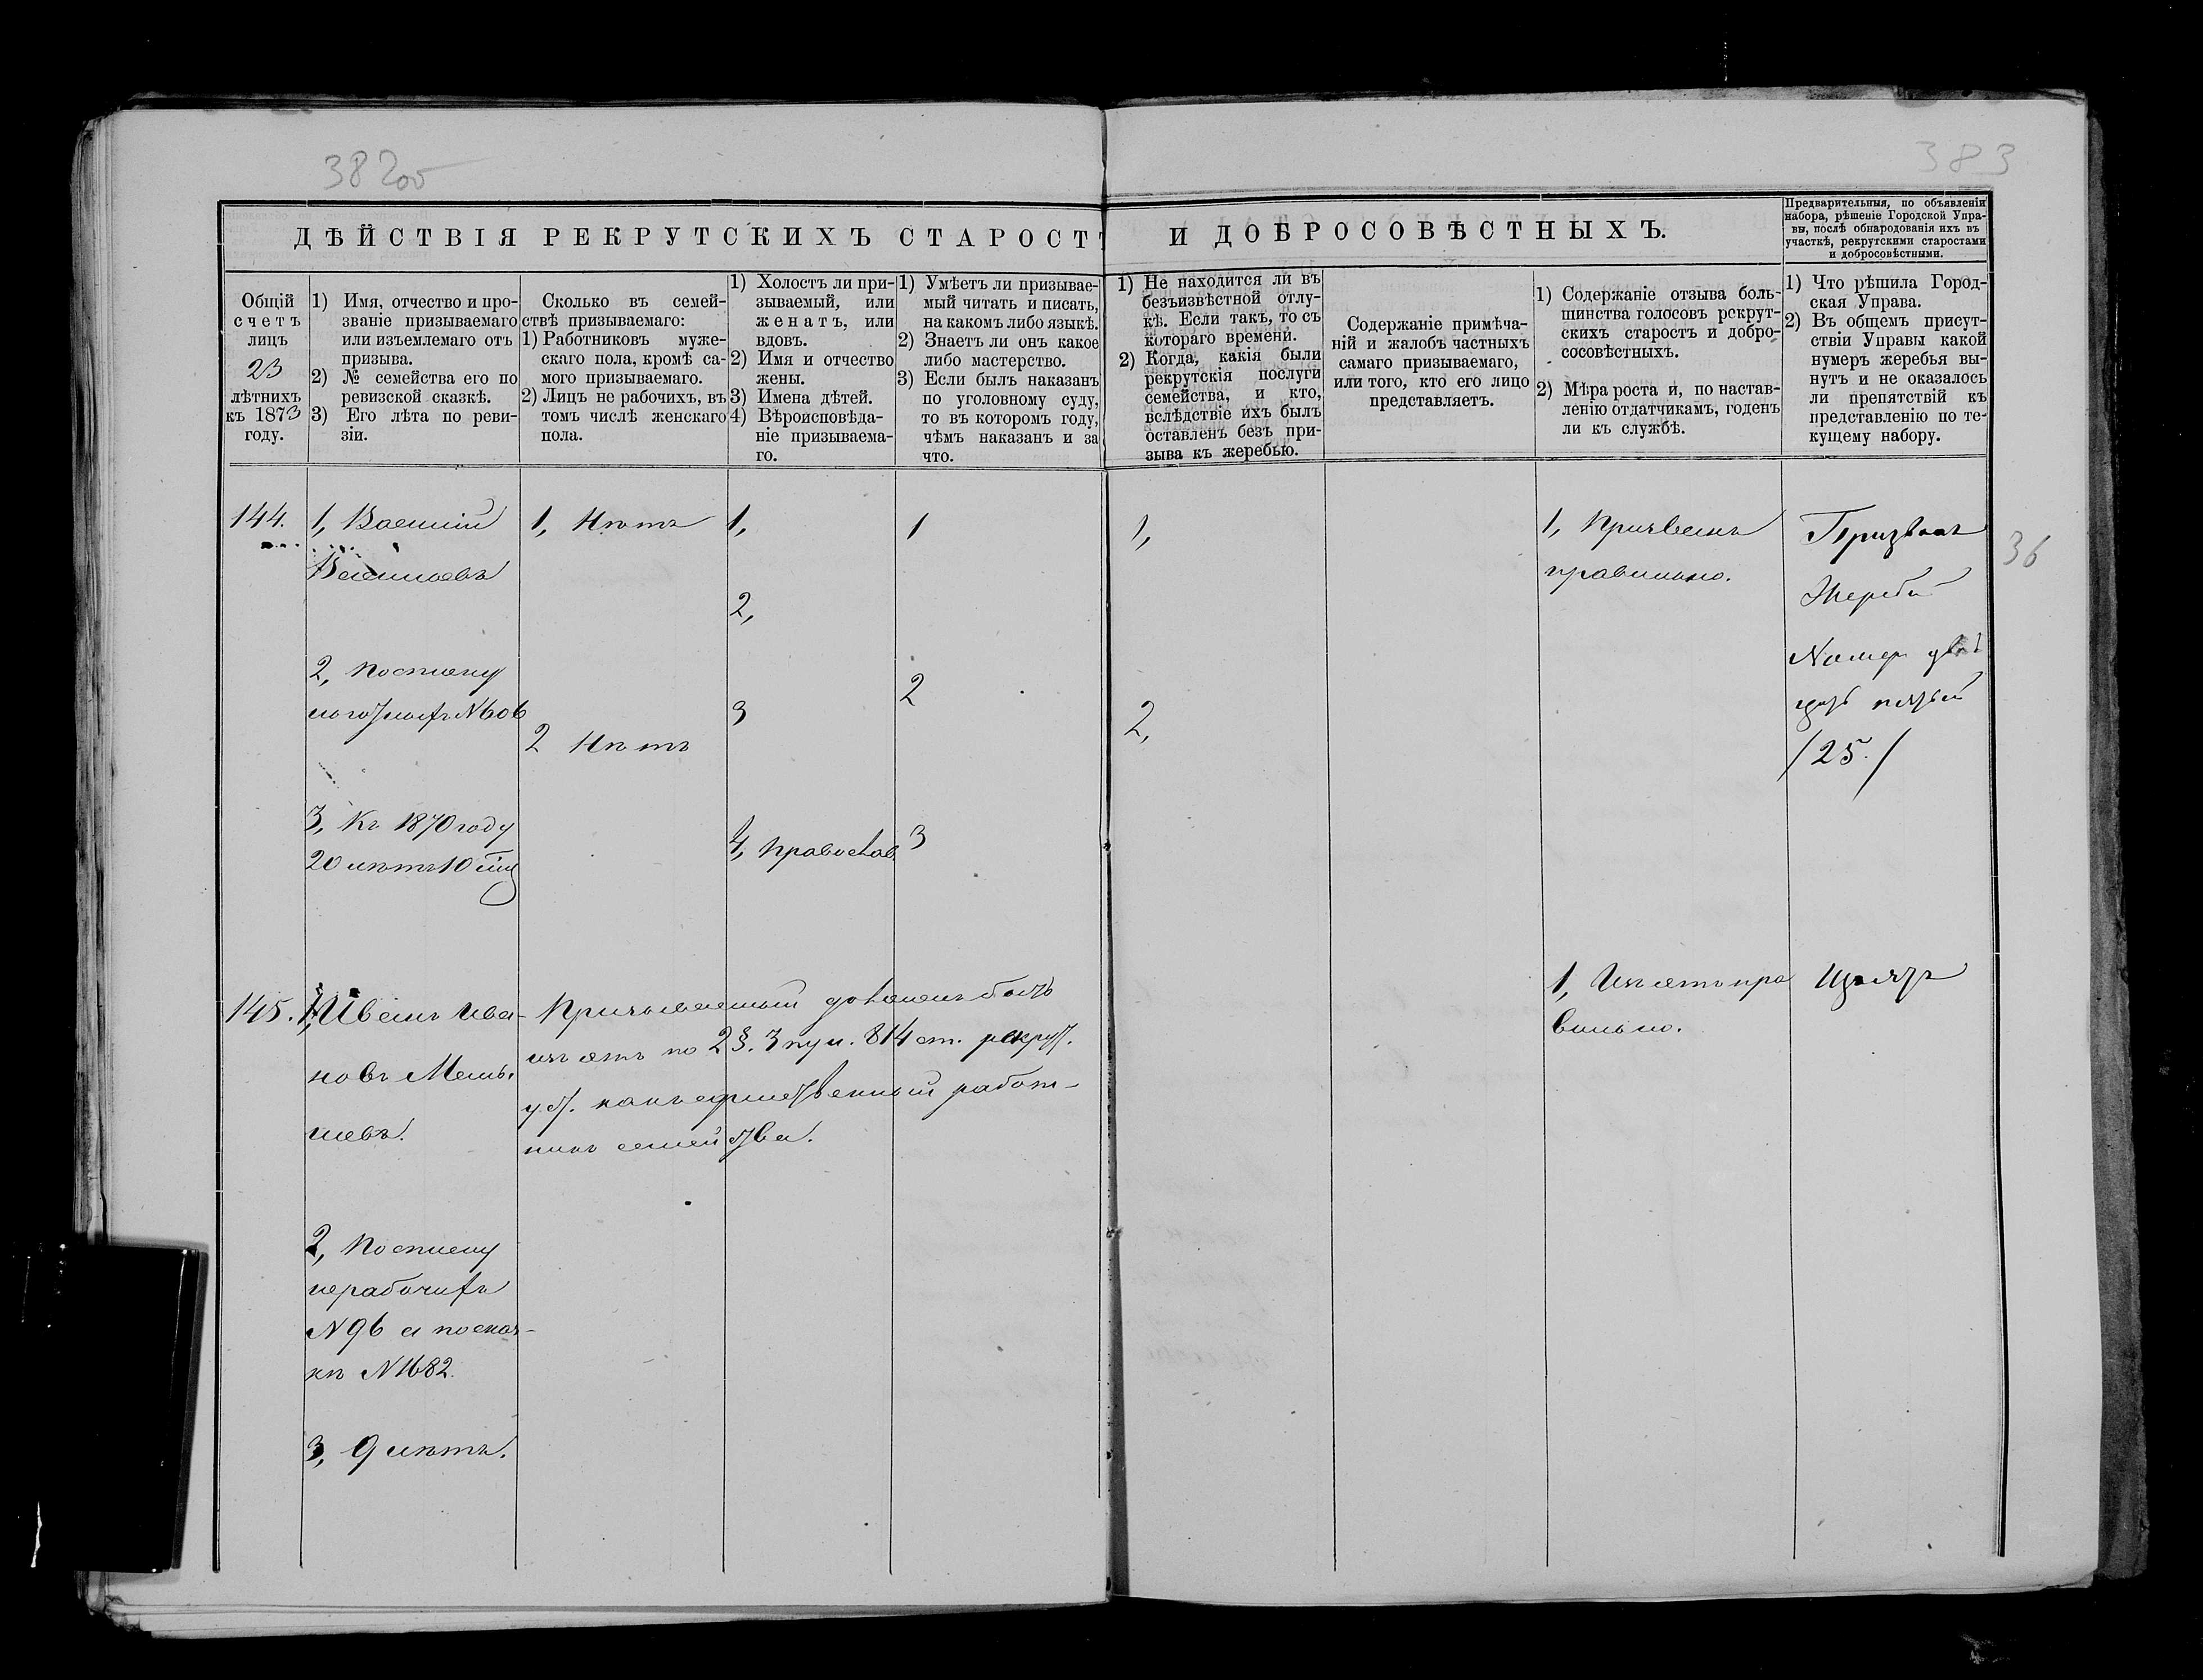 382об
383
ДѢЙСТВІЯ РЕКРУТСКИХЪ СТАРОСТЪ И ДОБРОСОВѢСТНЫХЪ.
Предварительныя, по объявленіи
набора, рѣшеніе Городской Упра-
вы, послѣ обнародованія ихъ въ
участкѣ, рекрутскими старостами
и добросовѣстными.
Общій
счетъ
лицъ
23
лѣтнихъ
къ 1873
году.
1) Имя, отчество и про-
званіе призываемаго
или изъемлемаго отъ
призыва.
2) № семейства его по
ревизской сказкѣ.
3) Его лѣта по реви-
зіи.
Сколько въ семей-
ствѣ призываемаго:
1) Работниковъ муже-
скаго пола, кромѣ са-
мого призываемаго.
2) Лицъ не рабочихъ, въ
томъ числѣ женскаго
пола.
1) Холостъ ли при-
зываемый, или
женатъ, или
вдовъ.
2) Имя и отчество
жены.
3) Имена дѣтей.
4) Вѣроисповѣда-
ніе призываема-
го.
1) Умѣетъ ли призывае-
мый читать и писать,
на какомъ либо языкѣ.
2) Знаетъ ли онъ какое
либо мастерство.
3) Если былъ наказанъ
по уголовному суду,
то въ которомъ году,
чѣмъ наказанъ и за
что.
1) Не находится ли въ
безъизвѣстной отлу-
кѣ. Если такъ, то съ
котораго времени.
2) Когда, какія были
рекрутскія послуги
семейства, и кто,
вслѣдствіе ихъ былъ
оставленъ безъ при-
зыва къ жеребью.
Содержаніе примѣча-
ній и жалобъ частныхъ
самаго призываемаго,
или того, кто его лицо
представляетъ.
1) Содержаніе отзыва боль-
шинства голосовъ рекрут-
скихъ старостъ и добро-
сосовѣстныхъ.
2) Мѣра роста и, по настав-
ленію отдатчикамъ, годенъ
ли къ службѣ.
1) Что рѣшила Город-
ская Управа.
2) Въ общемъ присут-
ствіи Управы какой
нумеръ жеребья вы-
нутъ и не оказалось
ли препятствій къ
представленію по те-
кущему набору.
144.
1, Василій
Васильевъ
2, По списку
N 606
3, Къ 1870 году
20 лѣтъ 10
1, Нѣтъ
2 Нѣтъ
1,
2,
3
4, Православ.
1
2
3
1,
2,
1, Призванъ
правильно.
Призванъ
Жребій
Номер двад
цать пятый
/25./
36
145.
1, Иванъ Ива-
новъ Мель-
невъ.
2, По списку
нерабочихъ
N 96 а по сказ-
кѣ N 1682.
3, 9 лѣтъ.
Призываемый долженъ быть
изъятъ по 2 §. 3 пун. 814 ст. рекрут.
уст. какъ единственный работ-
никъ семейства.
1, Изъятъ пра
вильно.
Изъятъ